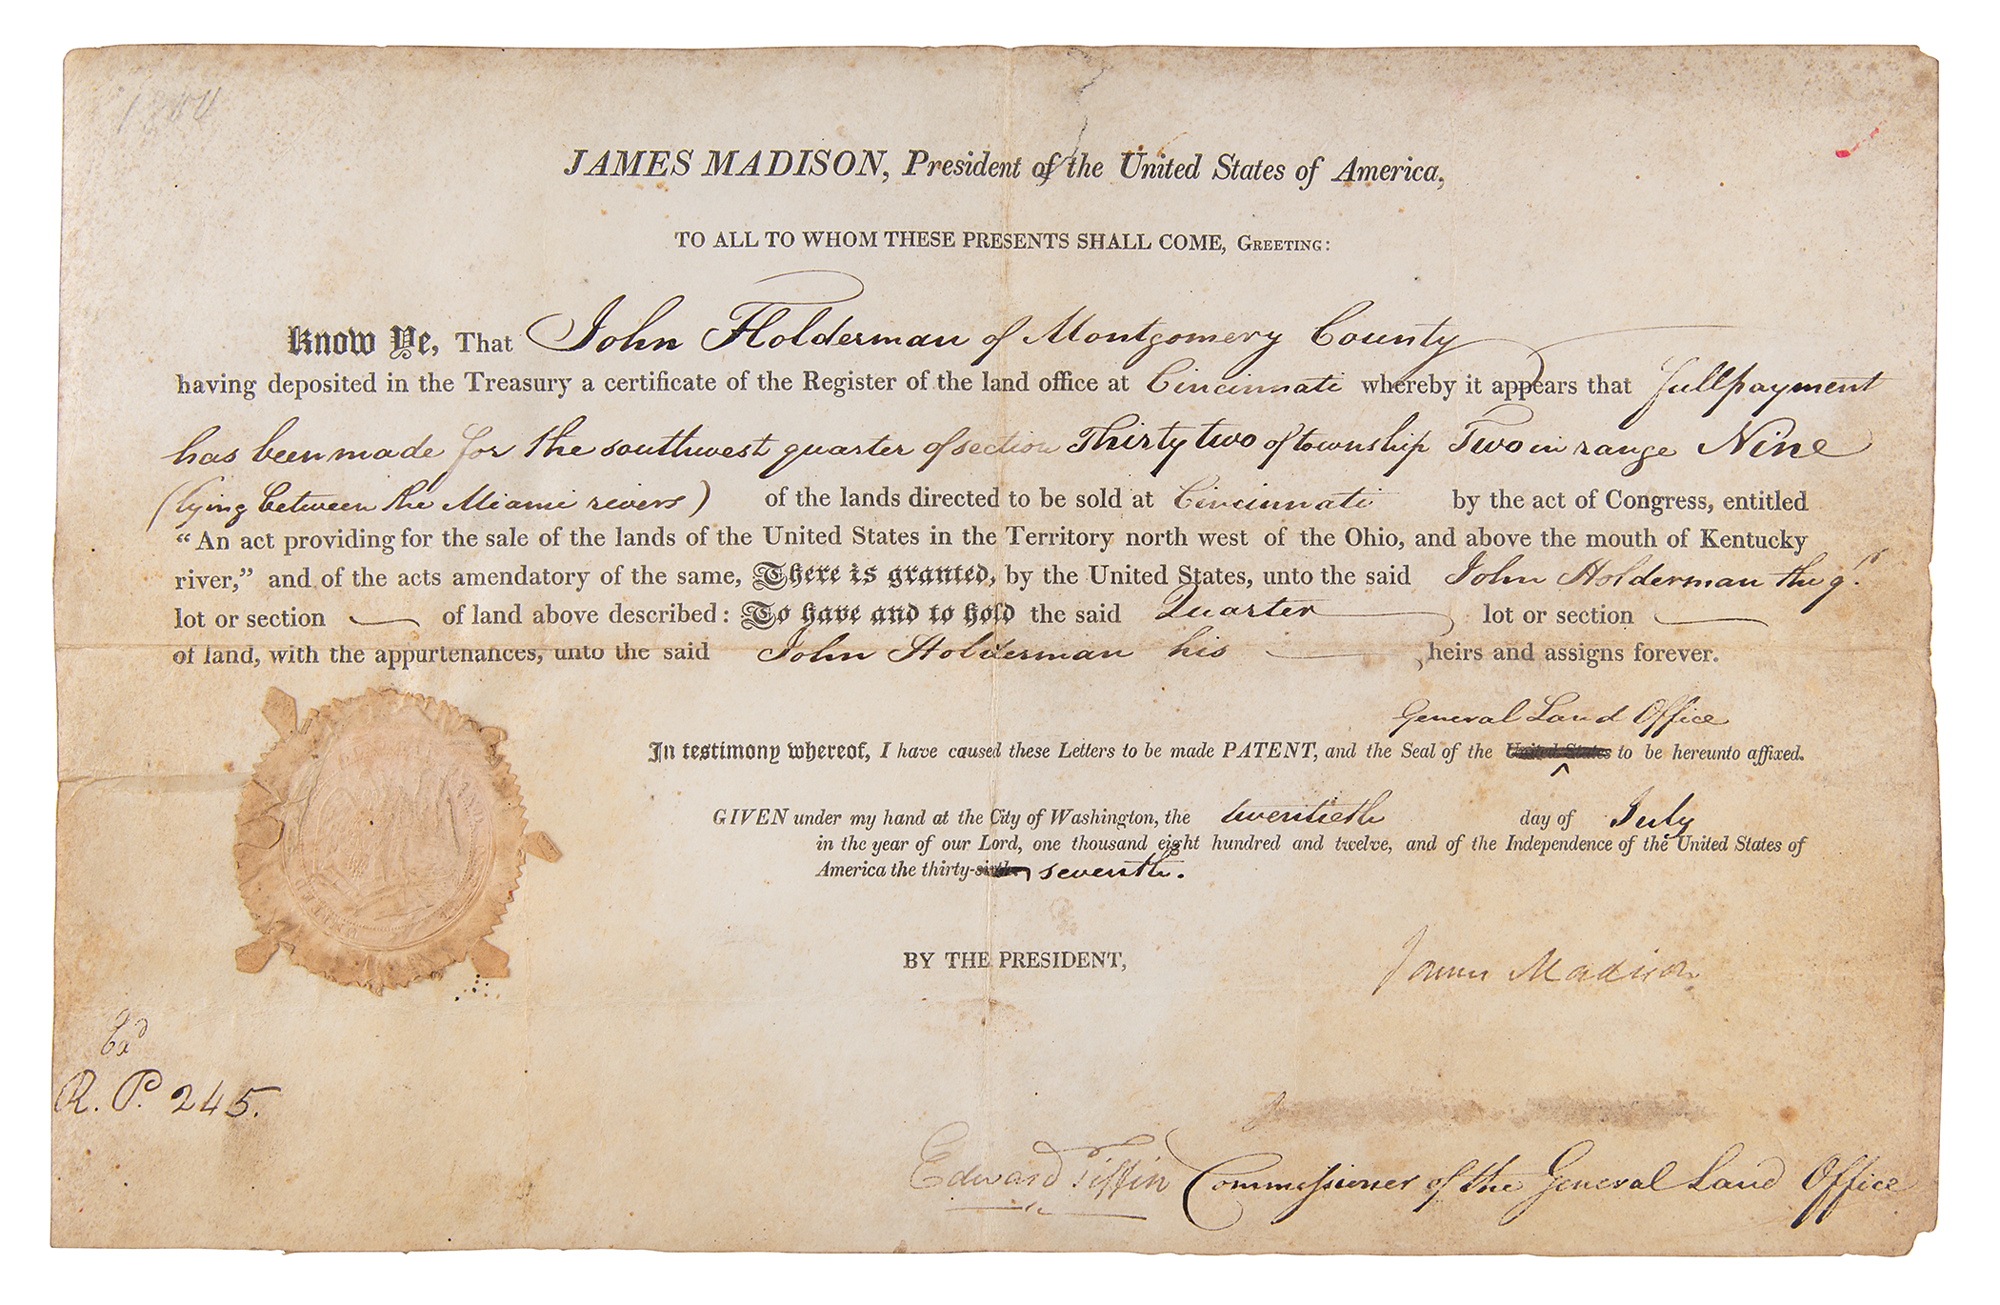 JAMES MADISON, President of the United States of America,
TO ALL TO WHOM THESE PRESENTS SHALL COME, GREETING:
Know Ye, That John Holderman of Montgomery County
having deposited in the Treasury a certificate of the Register of the land office at Cincinnati whereby it appears that full payment
has been made for the southwest quarter of section Thirty two of township Two in range Nine
(lying between the Miami rivers) of the lands directed to be sold at Cincinnati by the act of Congress, entitled
"An act providing for the sale of the lands of the United States in the Territory north west of the Ohio, and above the mouth of Kentucky
river," and of the acts amendatory of the same, There is granted, by the United States, unto the said John Holderman the qr.
lot or section of land above described: To have and to hold the said Quarter lot or section
of land, with the appurtenances, unto the said John Holderman his heirs and assigns forever.
General Land Office
In testimony whereof, I have caused these Letters to be made PATENT, and the Seal of the United States to be hereunto affixed.
GIVEN under my hand at the City of Washington, the twentieth day of July
in the year of our Lord, one thousand eight hundred and twelve, and of the Independence of the United States of
America the thirty-sixth seventh.
BY THE PRESIDENT,
James Madison
R. P. 245.
Edward Tiffin Commissioner of the General Land Office